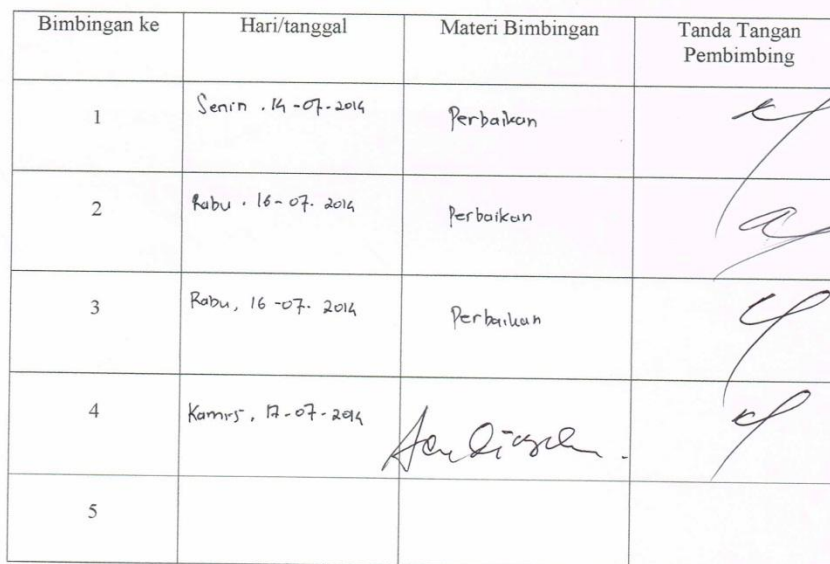 Bimbingan ke Hari/tanggal Materi Bimbingan Tanda Tangan
Pembimbing
1 Senin . 14-07-2014 Perbaikan
2 Rabu . 16-07. 2014 Perbaikan
3 Rabu, 16-07. 2014 Perbaikan
4 Kamis, 17-07-2014
5